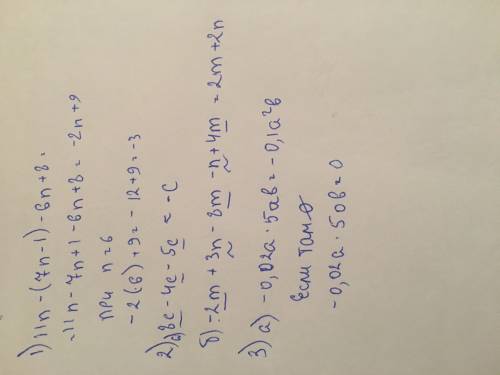 1) 11n-(7n-1)-6n+8=
=11n-7n+1-6n+8=-2n+9
при n=6
-2(6)+9=-12+9=-3
2) а) 8c-4c-5c=-c
б) -2m+3n-8m-n+4m=2m+2n
3) а) -0,02a·5ab=-0,1a²b
Если там 0
-0,02a·50b=0